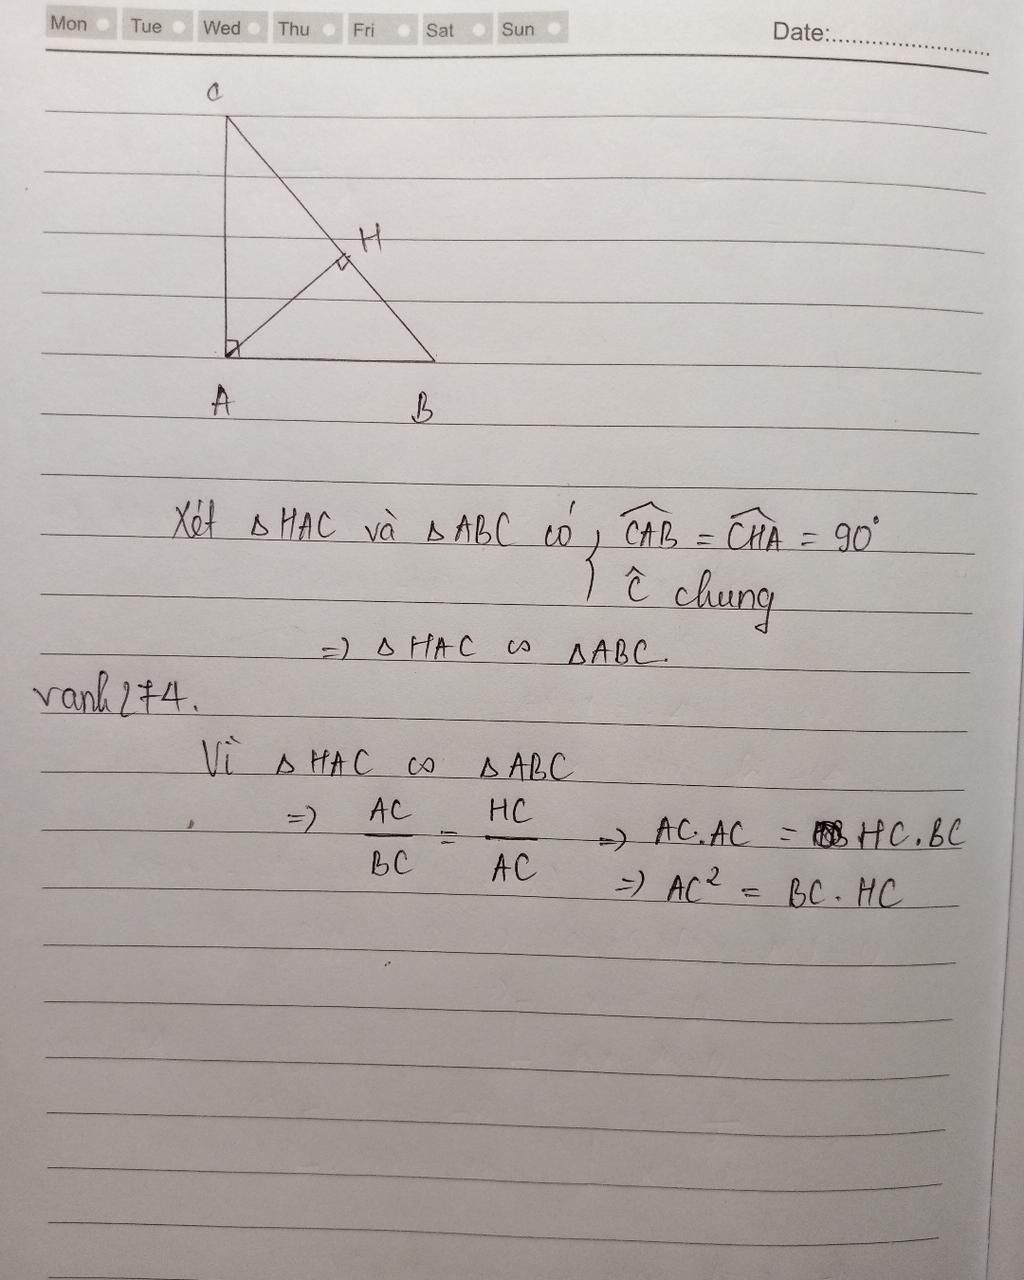 Mon Tue Wed Thu Fri Sat Sun Date:........................
C
H
A B
Xét Δ HAC và Δ ABC có { CAB̂ = CHÂ = 90°
Ĉ chung
=> Δ HAC ∽ ΔABC.
vanh274.
Vì Δ HAC ∽ Δ ABC
=> AC/BC = HC/AC => AC.AC = HC.BC
=> AC² = BC. HC